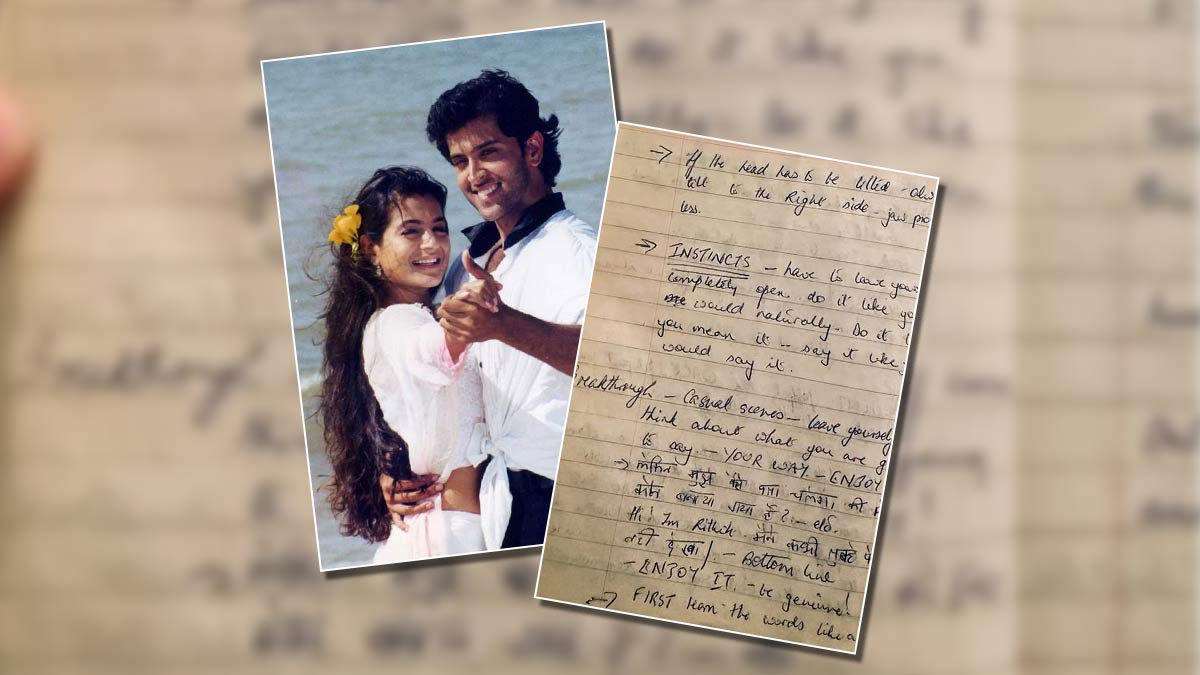 → If the head has to be tilted - alw
tilt to the Right side - jaw pro
less.
⇒ INSTINCTS - have to leave your
completely open. do it like yo
would naturally. Do it l
you mean it - say it like
would say it.
reakthrough - Casual scenes - leave yourself
think about what you are g
to say - YOUR WAY - ENJOY
→ लेकिन मुझे कैसे पता चलेगा की
कौन बनाया गया है? - etc.
Hi! Im Rithik. मैने काफी
नही देखा/. - Bottom line
- ENJOY IT. - be genuine!
→ FIRST learn the words like a